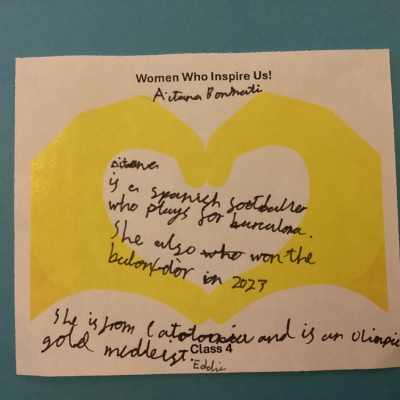 Women Who Inspire Us!
Aitana Bonmati
Aitana
is a spanish footballer
who plays for burculona.
She also who won the
balonfdòr in 2023
She is from and is an Olimpic
gold
Class 4
Eddie